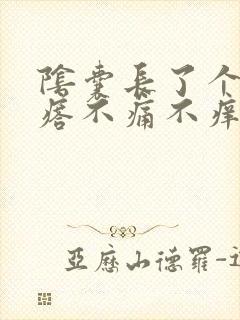 陰囊長了个
瘩不痛不痒
亞歷山德羅-